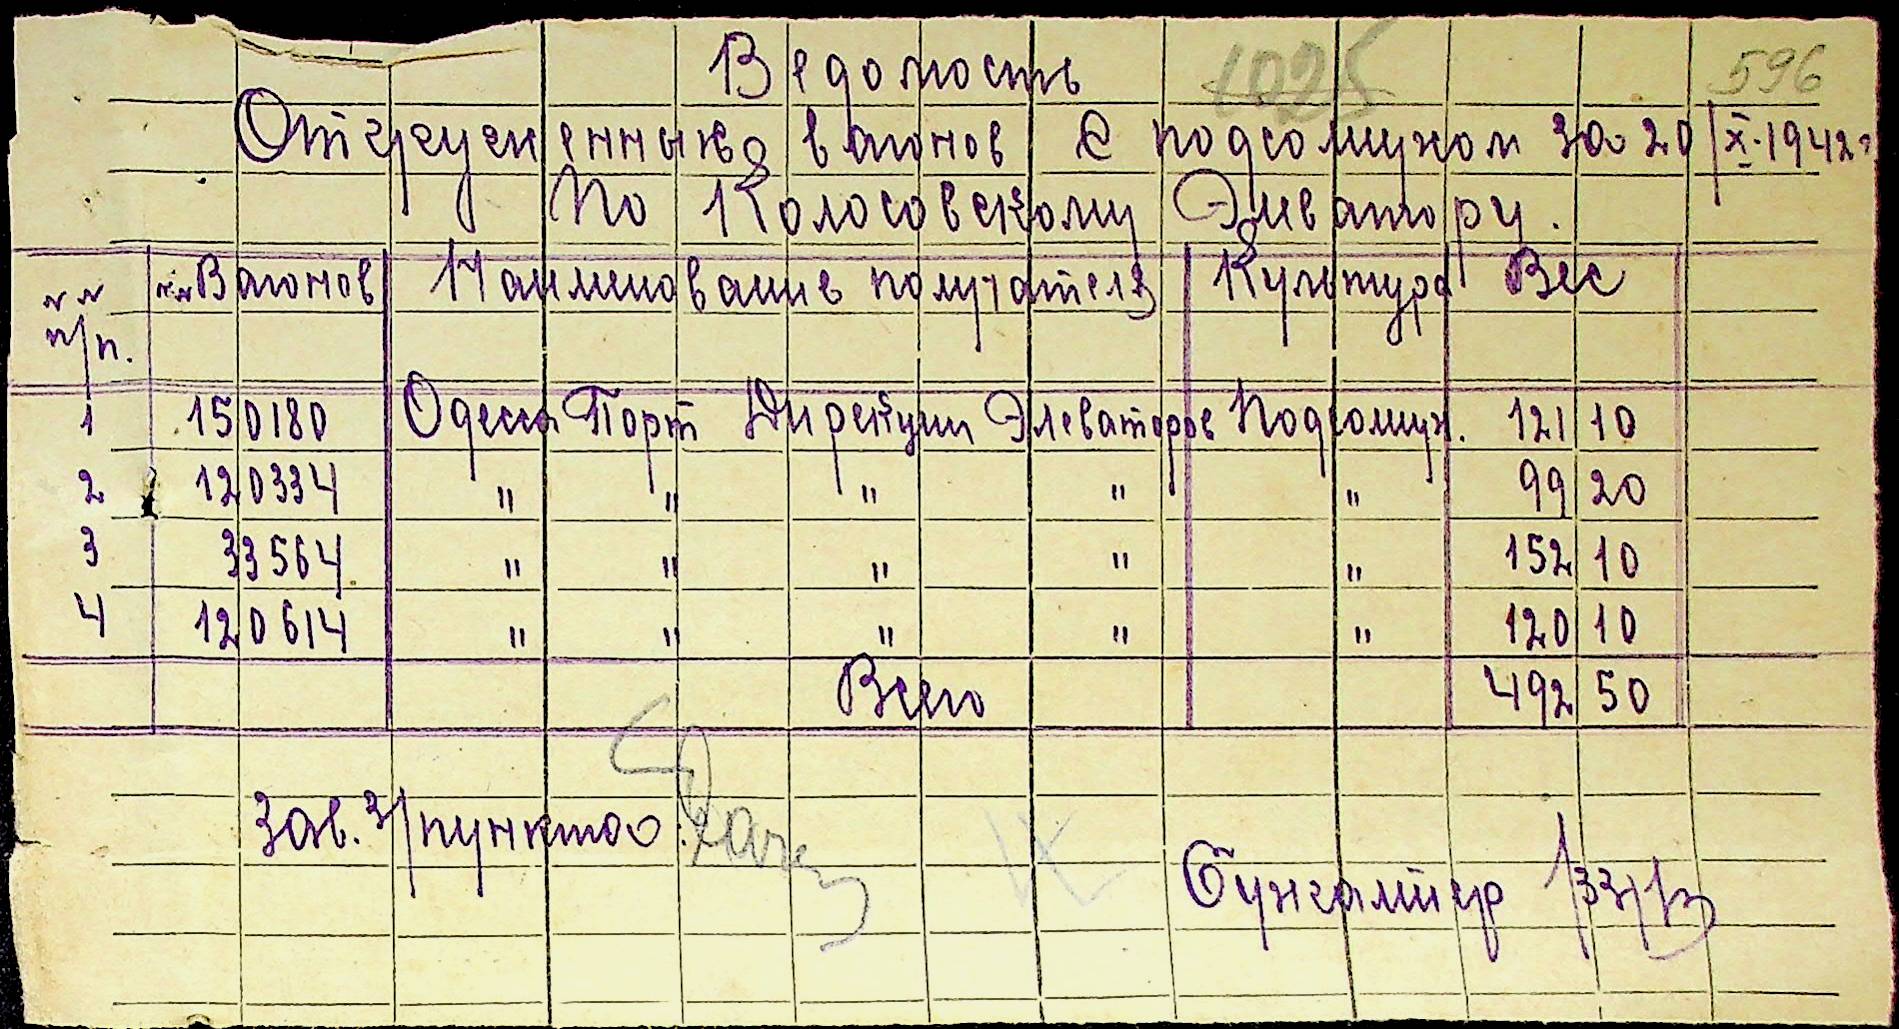 1025
596
Ведомость
Отгруженных вагонов с подсолнухом за 20/X-1942г
По Колосовскому Элеватору.
№№ п/п. №№ Вагонов Наименование получателя Культура Вес
1 150180 Одесса Порт Дирекции Элеваторов Подсолнух. 121 10
2 120334 " " " " " 99 20
3 33564 " " " " " 152 10
4 120614 " " " " " 120 10
Всего 492 50
Зав. З/пункта:
Бухгалтер